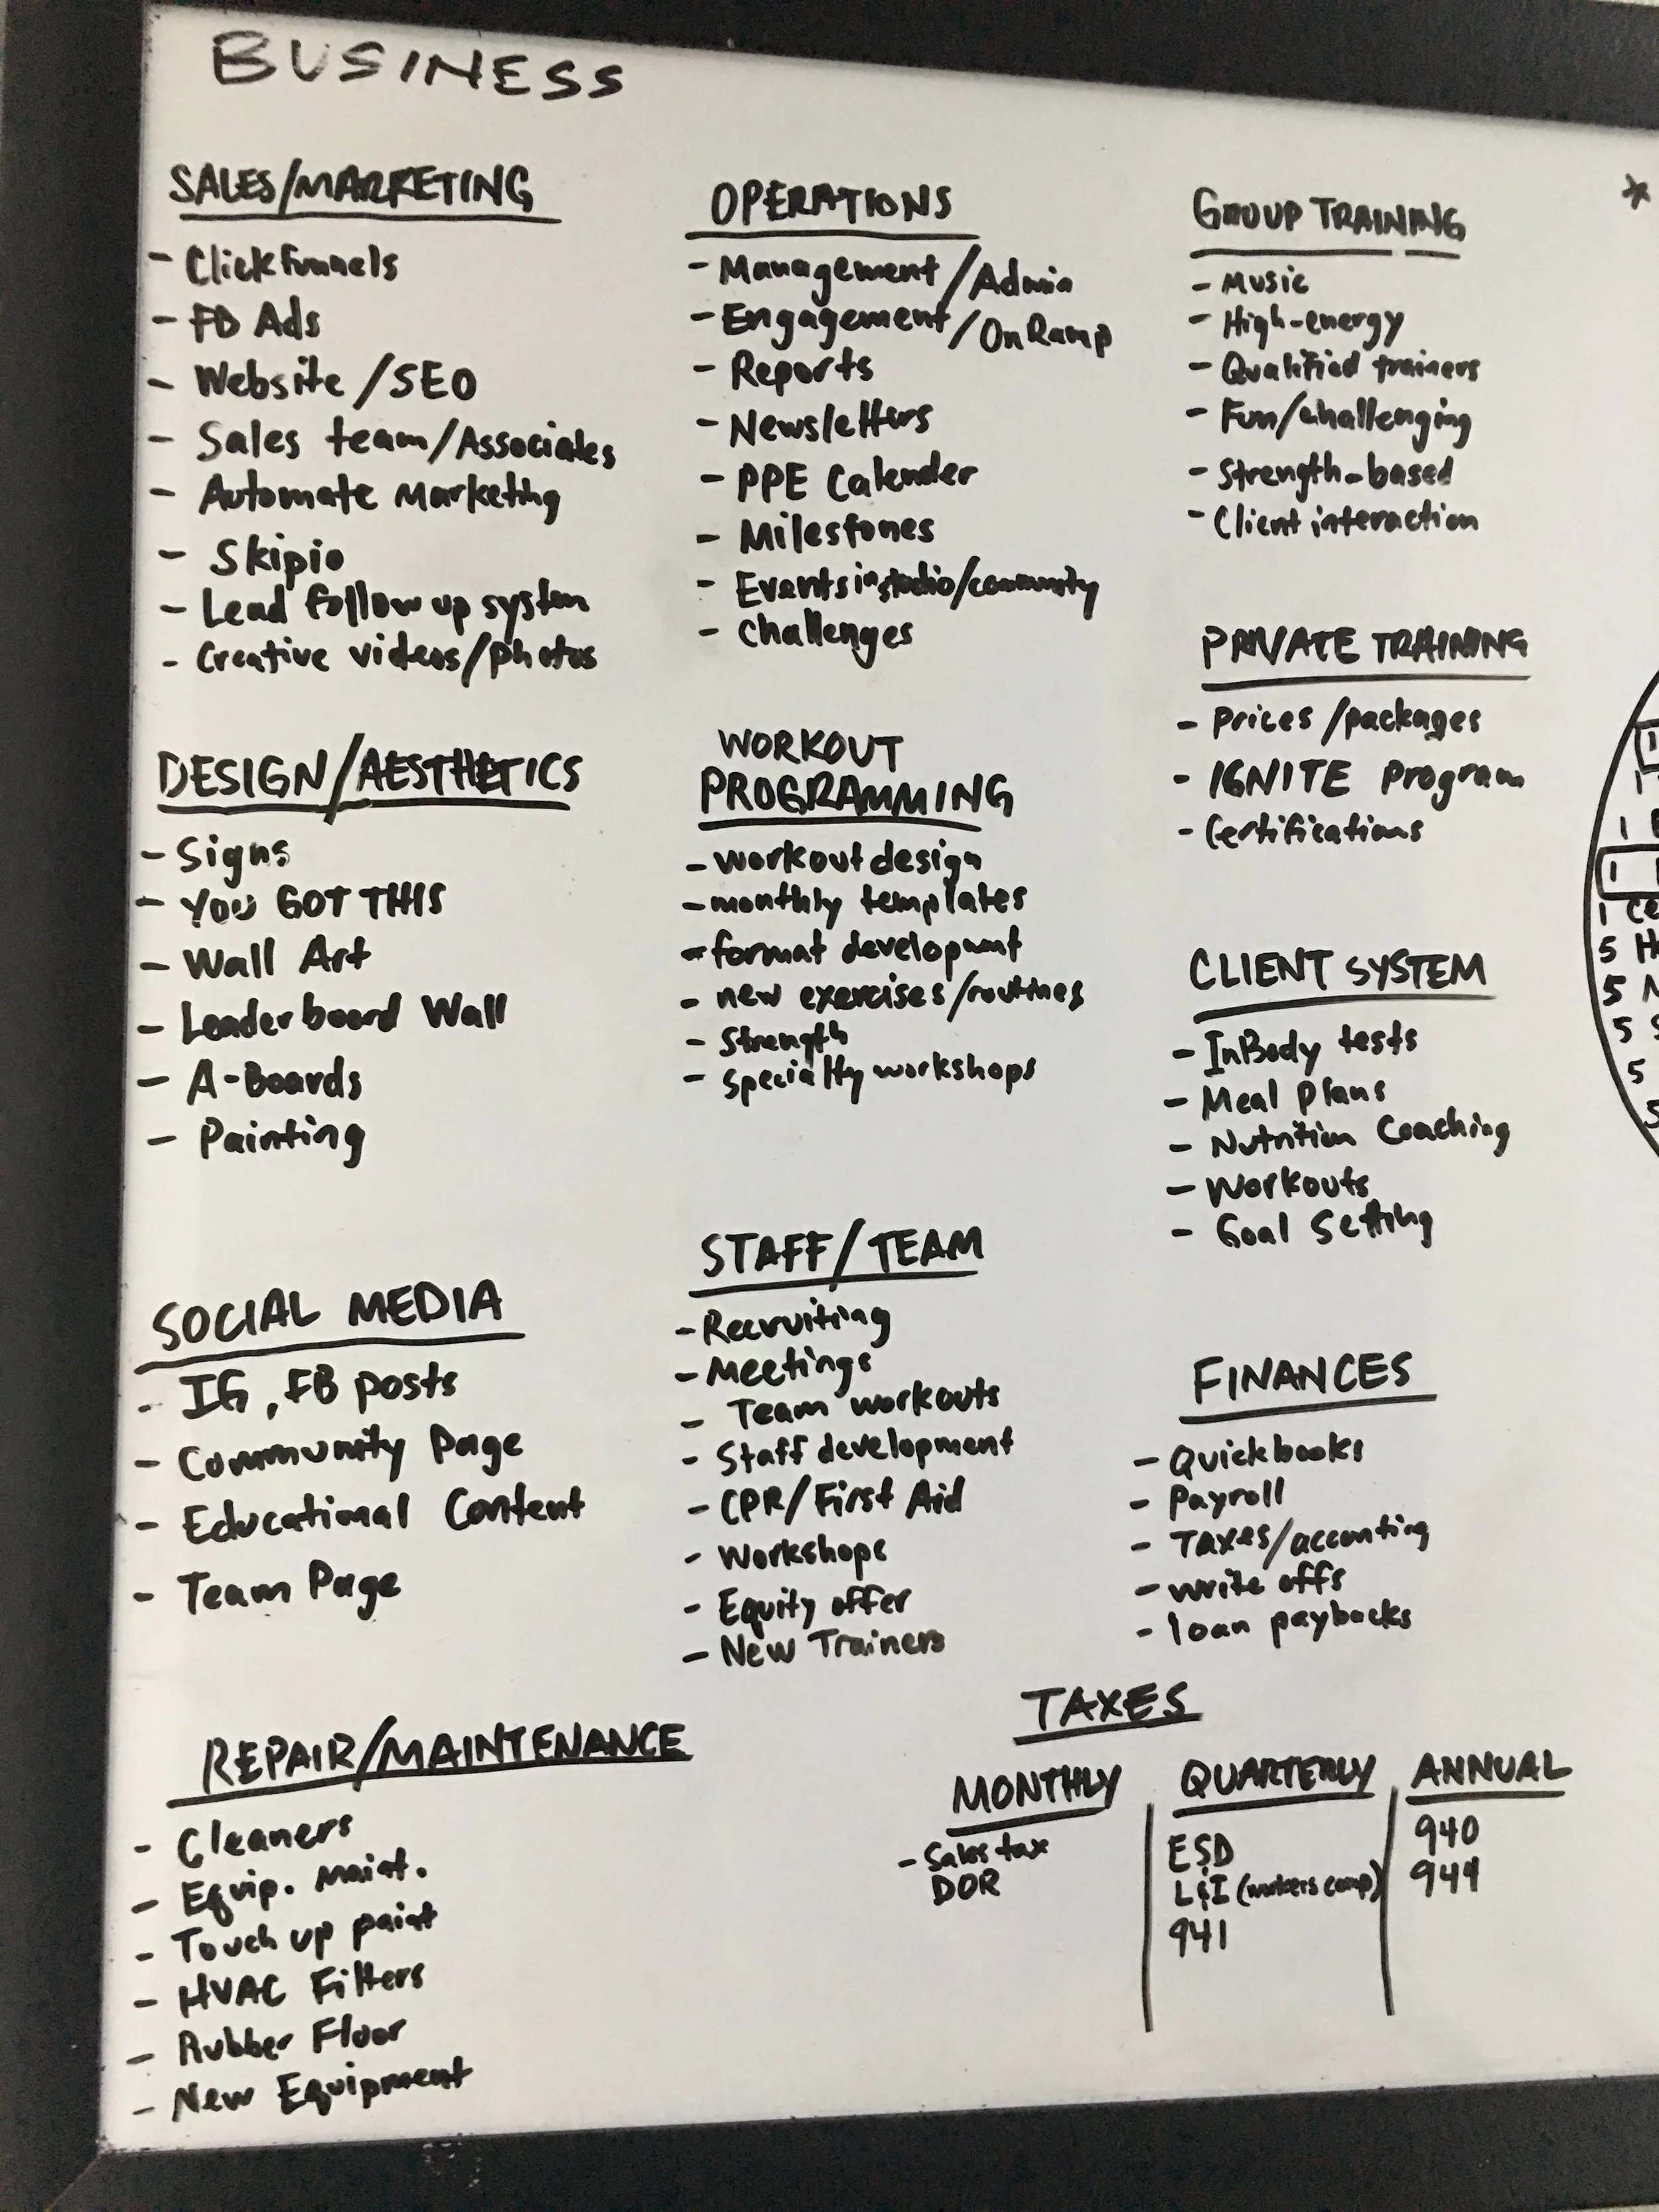 BUSINESS
SALES/MARKETING
- Clickfunnels
- FB Ads
- Website/SEO
- Sales team/Associates
- Automate Marketing
- Skipio
- Lead follow up system
- Creative videos/photos
DESIGN/AESTHETICS
- Signs
- YOU GOT THIS
- Wall Art
- Leaderboard Wall
- A-Boards
- Painting
SOCIAL MEDIA
- IG, FB posts
- Community Page
- Educational Content
- Team Page
REPAIR/MAINTENANCE
- Cleaners
- Equip. Maint.
- Touch up paint
- HVAC Filters
- Rubber Floor
- New Equipment
OPERATIONS
- Management/Admin
- Engagement/OnRamp
- Reports
- Newsletters
- PPE Calender
- Milestones
- Events in studio/community
- Challenges
WORKOUT
PROGRAMMING
- workout design
- monthly templates
- format development
- new exercises/routines
- Strength
- Specialty workshops
STAFF/TEAM
- Recruiting
- Meetings
- Team workouts
- Staff development
- CPR/First Aid
- Workshops
- Equity offer
- New Trainers
GROUP TRAINING
- Music
- High-energy
- Qualified trainers
- Fun/challenging
- Strength-based
- Client interaction
PRIVATE TRAINING
- Prices/packages
- IGNITE Program
- Certifications
CLIENT SYSTEM
- InBody tests
- Meal Plans
- Nutrition Coaching
- Workouts
- Goal Setting
FINANCES
- Quickbooks
- Payroll
- Taxes/acconting
- write offs
- loan paybacks
TAXES
MONTHLY
- Sales tax
DOR
QUARTERLY
ESD
L&I (workers comp)
941
ANNUAL
940
944
*
1
1
1
1
1 Ce
5 H
5
5 S
5
5